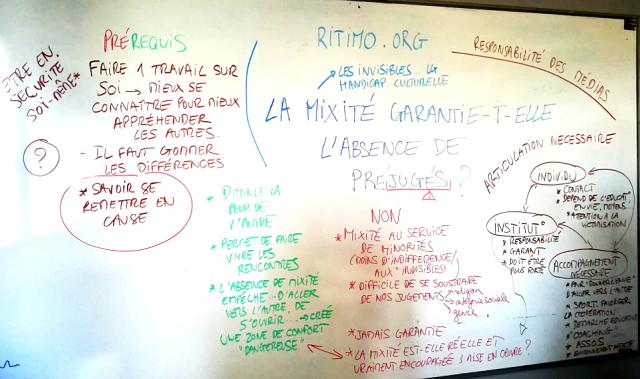 ÊTRE EN
SÉCURITÉ
SOI-MÊME*
?
PRÉREQUIS
FAIRE 1 TRAVAIL SUR
SOI → MIEUX SE
CONNAÎTRE POUR MIEUX
APPRÉHENDER
LES AUTRES.
- IL FAUT GOMMER
LES DIFFÉRENCES
* SAVOIR SE
REMETTRE EN
CAUSE
RITIMO.ORG
LES INVISIBLES...
HANDICAP CULTURELLE
LA MIXITÉ GARANTIE-T-ELLE
L'ABSENCE DE
PRÉJUGÉS?
RESPONSABILITÉ DES MÉDIAS
* DIMINUE LA
PEUR DE
L'AUTRE
* PERMET DE FAIRE
VIVRE LES
RENCONTRES
* L'ABSENCE DE MIXITÉ
EMPÊCHE... D'ALLER
VERS L'AUTRE, DE
S'OUVRIR... → CRÉÉ
UNE ZONE DE CONFORT
"DANGEREUSE"
NON
* MIXITÉ AU SERVICE
DE MINORITÉS
(MOINS D'INDIFFÉRENCE
AUX "INVISIBLES)
* DIFFICILE DE SE SOUSTRAIRE
DE NOS JUGEMENTS → religion
→ catégorie sociale
→ genre
* JAMAIS GARANTIE
* LA MIXITÉ EST-ELLE RÉELLE ET
VRAIMENT ENCOURAGÉE & MISE EN ŒUVRE?
ARTICULATION NÉCESSAIRE
INDIVIDU
* CONTACT
* DÉPEND DE L'ÉDUCAT°
ENVIE, MOYENS...
* ATTENTION À LA
VICTIMISATION
INSTITUT°
* RESPONSABILITÉ
* GARANT
* DOIT ÊTRE
PLUS
ACCOMPAGNEMENT
NÉCESSAIRE
* POUR
D'ALLER VERS L'AUTRE
* SPORT: FAVORISER
LA COOPÉRATION
* DÉMARCHE ÉDUCATIVE
* "COACHING"
* ASSOS